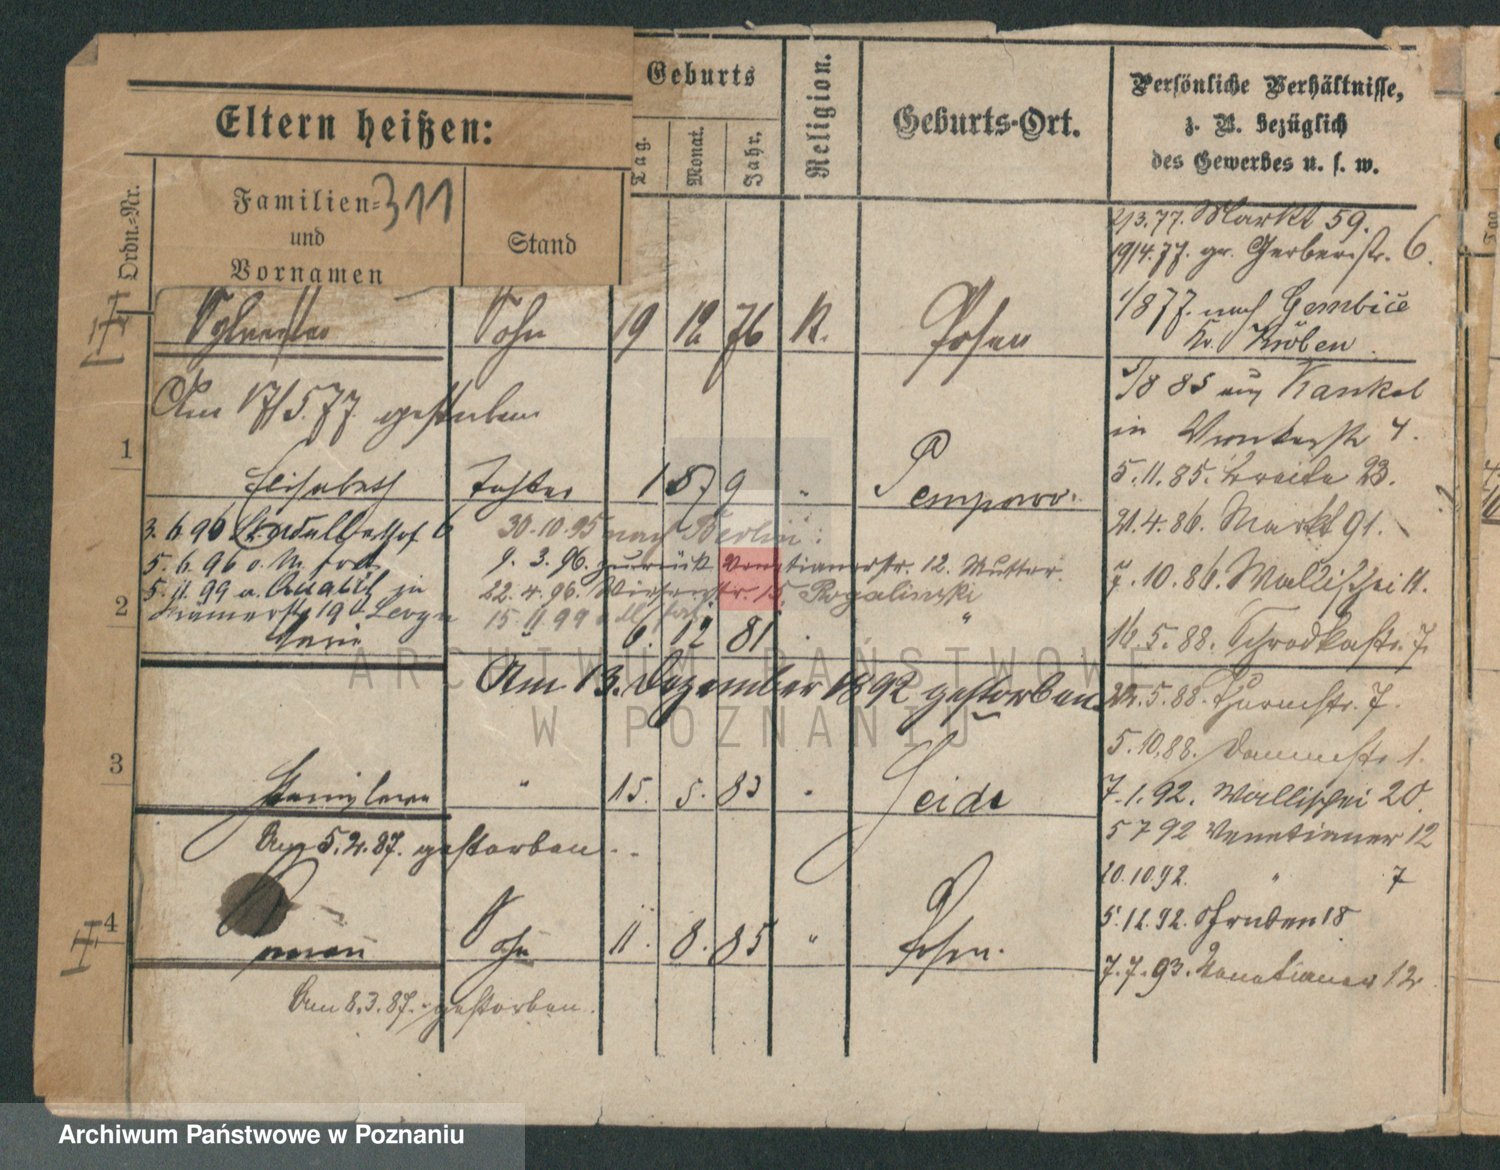 Eltern heißen:
Geburts
Religion.
Geburts-Ort.
Persönliche Verhältnisse,
z. B. bezüglich
des Gewerbes u. s. w.
Ordn.-Nr.
Familien- 311
und
Vornamen
Stand
Tag.
Monat.
Jahr.
2/3.77. Markt 59.
19/4.77. gr. Gerberstr. 6.
Sylvester Sohn 19 12 76 K. Posen
1/8 77. nach Gembice
Kr. Kröben.
Am 17/5.77. gestorben
1/8 85 aus
in 4.
1
Elisabeth Tochter 1 8 79 " Pempowo.
5.11.85. Breite 23.
21.4.86. Markt 91.
3.6.96 6 30.10.95 nach Berlin.
5.6.96 9.3.96. zurück Venetianerstr. 12. Mutter.
7.10.86. Wallischei 11.
5.11.99 22.4.96. str. 15. Rogalinski
2
19 15.11.99
Marie 6. 12 81 "
16.5.88. Schrodkastr. 7.
Am 13. Dezember 1892 gestorben.
22.5.88. Thurmstr. 7.
5.10.88. Dammstr. 1.
3
Stanislawa " 15. 5. 83 " Zeide
7.1.92. Wallischei 20.
Am 5.2.87. gestorben
5 7 92 Venetianer 12
20.10.92. " 7
4
Roman Sohn 11. 8. 85 " Posen.
5.12.92. 18
7.7.93. Venetianer 12
Am 8.3.87. gestorben.
ARCHIWUM PAŃSTWOWE
W POZNANIU
Archiwum Państwowe w Poznaniu